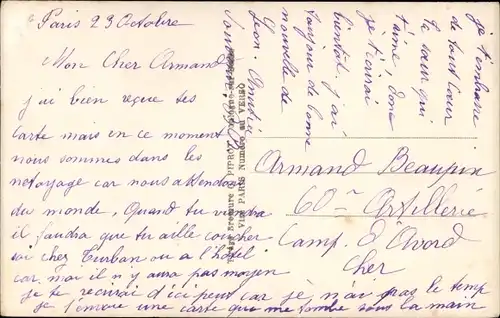 Paris 23 Octobre
Mon Cher Armand
j'ai bien reçue tes
carte mais en ce moment
nous sommes dans les
netoyage car nous attendons
du monde, Quand tu viendra
il faudra que tu aille coucher
soi chez Turban ou a l'hôtel
car moi il n'y aura pas moyen
je te recrirai d'ici peut car je n'ai pas le temp
je t'envoie une carte que me tombe sous la main
je t'embrasse
de tout cœur
Ta sœur qui
t'aime,
je t'écrirai
bientôt j'ai
toujour de bonne
nouvelle de
Léon.
PARIS Numéro au VERSO
Armand Beaupin
60me Artillerie
Camp. D'Avord
Cher